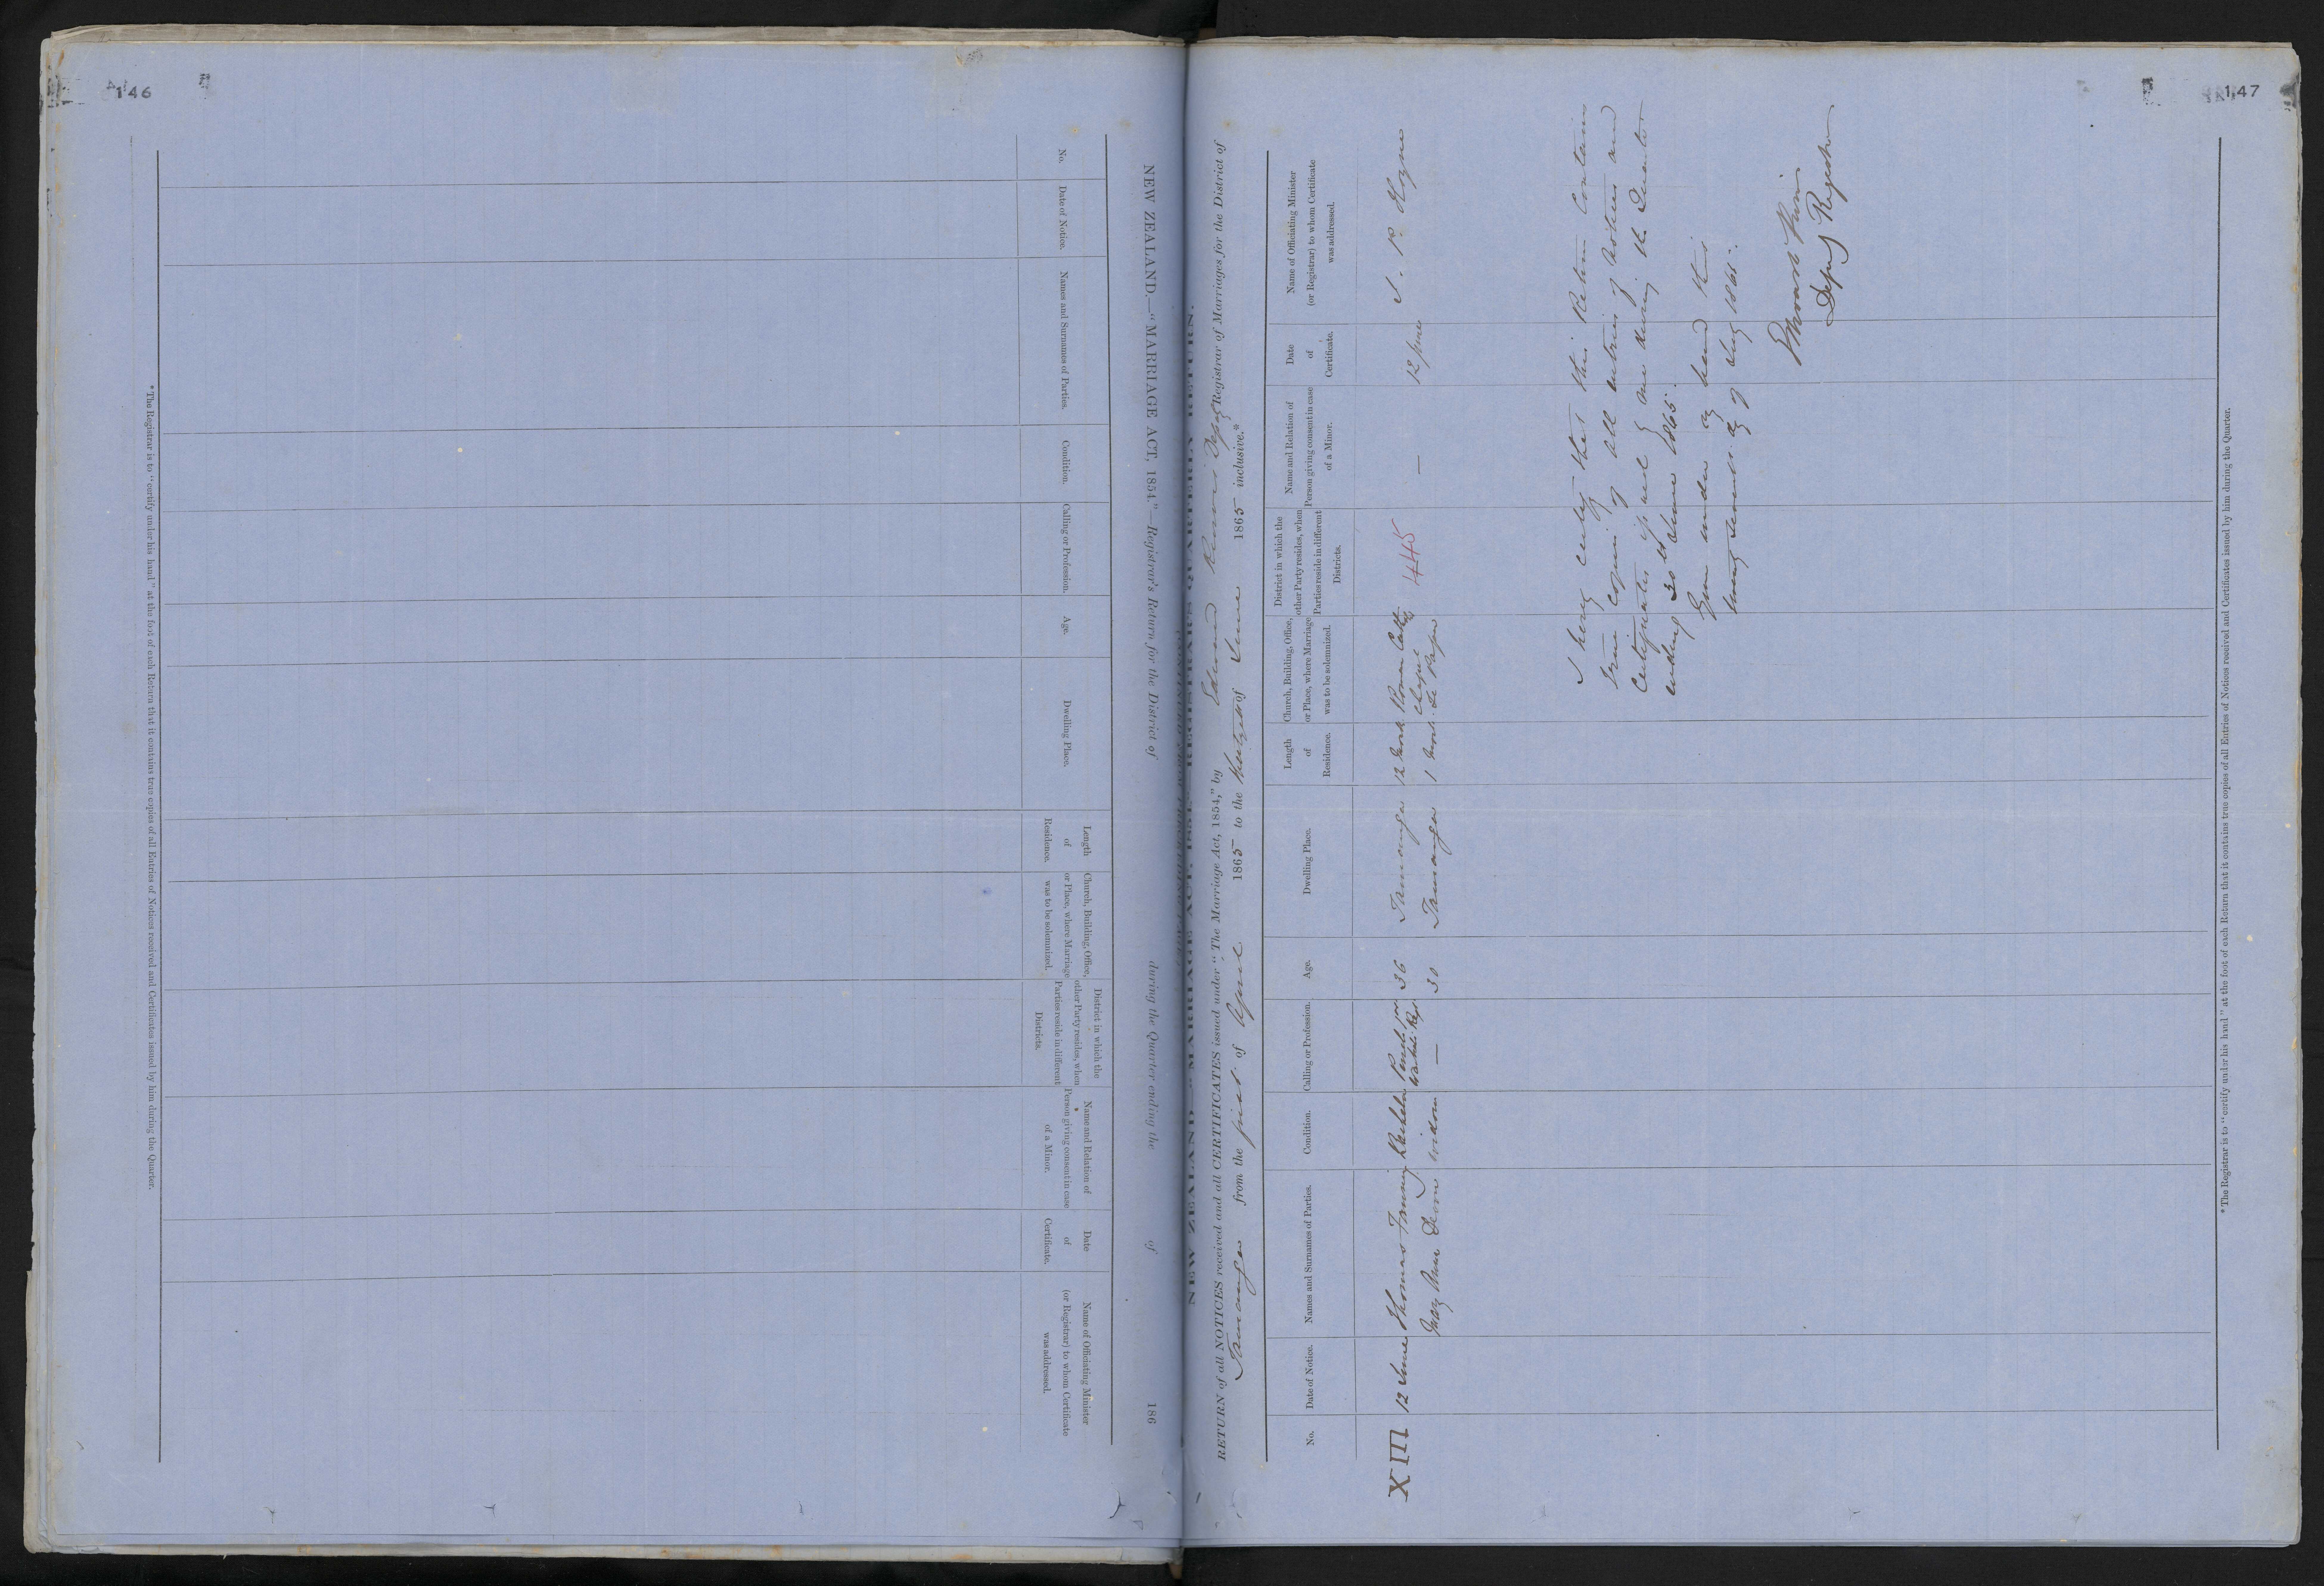 146
NEW ZEALAND.—"MARRIAGE ACT, 1854."—Registrar's Return for the District of during the Quarter ending the of 186
No.
Date of Notice.
Names and Surnames of Parties.
Condition.
Calling or Profession.
Age.
Dwelling Place.
Length
of
Residence.
Church, Building, Office,
or Place, where Marriage
was to be solemnized.
District in which the
other Party resides, when
Parties reside in different
Districts.
Name and Relation of
Person giving consent in case
of a Minor.
Date
of
Certificate.
Name of Officiating Minister
(or Registrar) to whom Certificate
was addressed.
* The Registrar is to "certify under his hand" at the foot of each Return that it contains true copies of all Entries of Notices received and Certificates issued by him during the Quarter.
147
NEW ZEALAND.—"MARRIAGE ACT, 1854."—REGISTRAR'S QUARTERLY RETURN.
RETURN of all NOTICES received and all CERTIFICATES issued under "The Marriage Act, 1854," by Edmund Deputy Registrar of Marriages for the District of
Tauranga from the first of April 1865 to the thirtieth of June 1865 inclusive.*
No.
Date of Notice.
Names and Surnames of Parties.
Condition.
Calling or Profession.
Age.
Dwelling Place.
Length
of
Residence.
Church, Building, Office,
or Place, where Marriage
was to be solemnized.
District in which the
other Party resides, when
Parties reside in different
Districts.
Name and Relation of
Person giving consent in case
of a Minor.
Date
of
Certificate.
Name of Officiating Minister
(or Registrar) to whom Certificate
was addressed.
XIII 12 June Thomas Bachelor 36 Tauranga 12 Roman Cath
Mary Anne widow — 30 Tauranga 1 Chapel Te Papa
445 — 12 June
I hereby certify that this Return contains
true copies of all entries of Notices and
Certificates issued by me during the Quarter
ending 30th June 1865.
Given under my hand this
day of July 1865.
Deputy Registrar
* The Registrar is to "certify under his hand" at the foot of each Return that it contains true copies of all Entries of Notices received and Certificates issued by him during the Quarter.